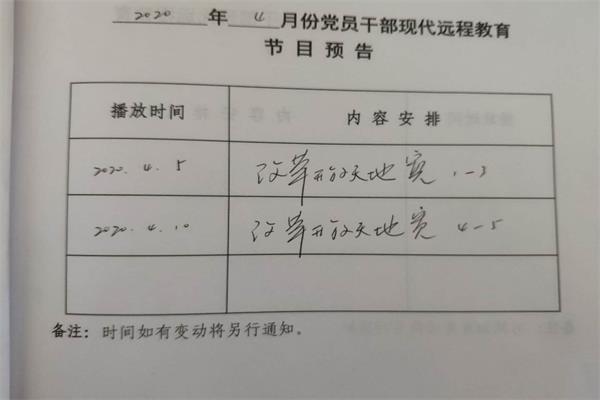 2020 年 4 月份党员干部现代远程教育
节目预告
播放时间 内容安排
2020.4.5 改革开放天地宽 1-3
2020.4.10 改革开放天地宽 4-5
备注：时间如有变动将另行通知。